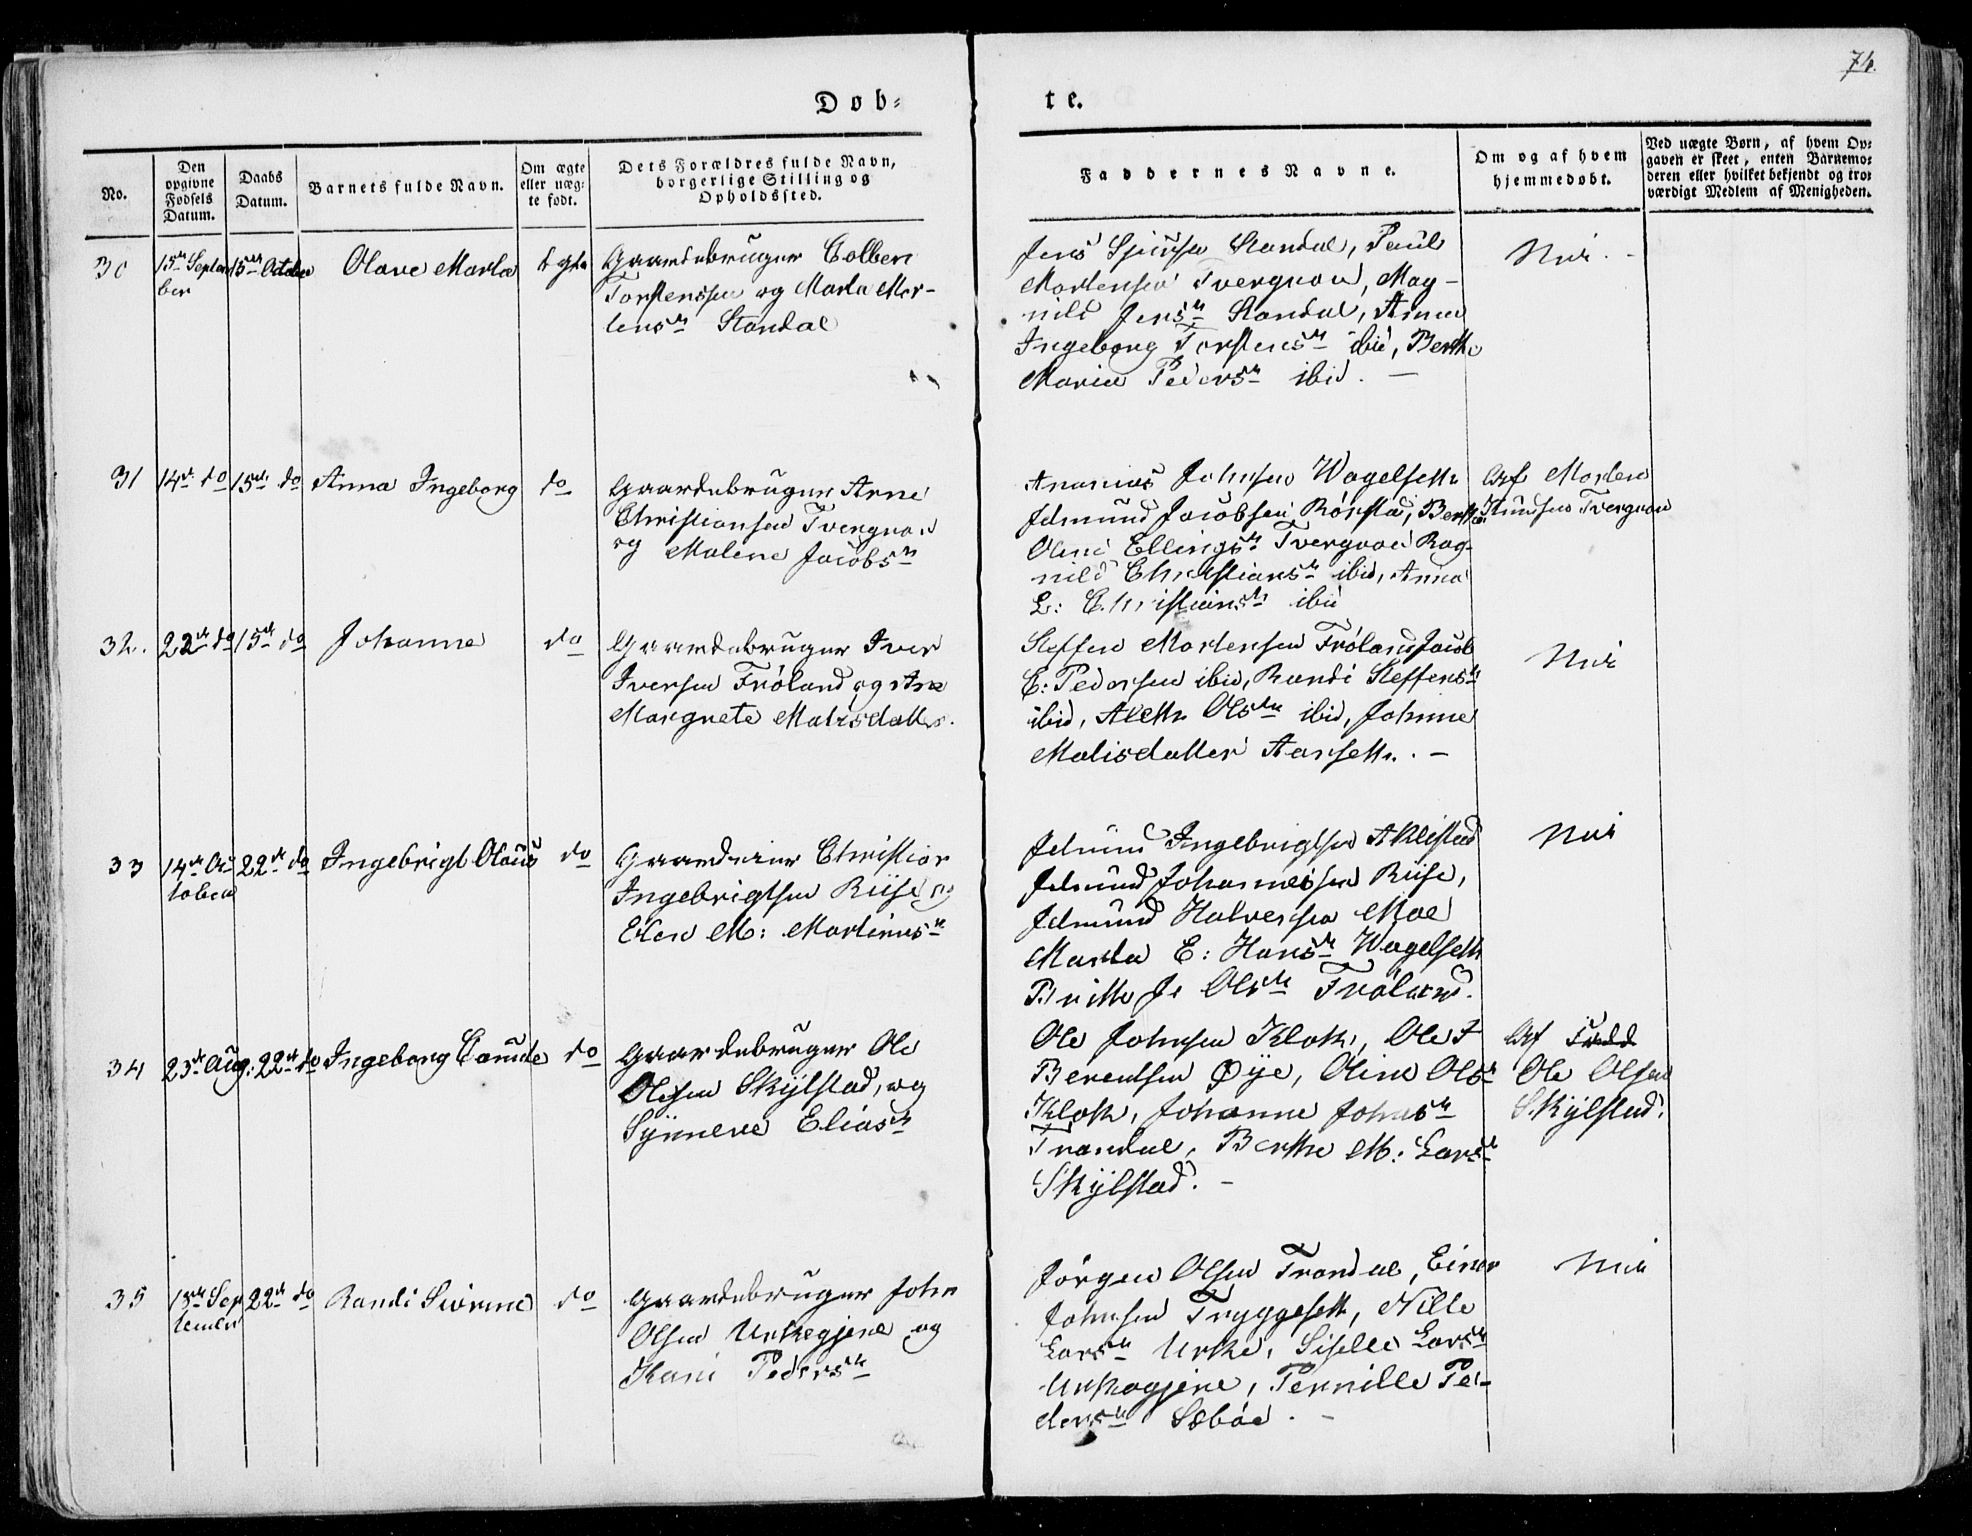 74.
Døb-
te.
No.
Den opgivne Fødsels Datum.
Daabs Datum.
Barnets fulde Navn.
Om ægte eller uæg-te født.
Dets Forældres fulde Navn, borgerlige Stilling og Opholdssted.
Faddernes Navne.
Om og af hvem hjemmedøbt.
Ved uægte Børn, af hvem Op-gaven er skeet, enten Barnemo-deren eller hvilket bekjendt og tro-værdigt Medlem af Menigheden.
30
15de Septem
ber
15de October
Olave Marta
Gaardebruger Colben
Torstensen og Marta Mor-
tensdr Standal
Jens Standal, Paul
Mortensen Tvergroe, Mag-
nild Jensdr Standal, Anna
Ingeborg Torstensdr ibid, Berthe
Maria Pedersdr ibid. -
Nei. -
31
14de do
15de do
Anna Ingeborg
do
Gaardebruger Arne
Christiansen Tvergroe
og Malene Jacobsdr
Ananias Johnsen Wagelseth
Jetmund Jacobsen Rørstad, Berthe
Oline Ellingsdr Tvergroe Rag-
nild Christiansdr ibid, Anna
L: Christiansdr ibid
Af Morten
Knudsen Tvergroe
32.
22de do
15de do
Johanne
do
Gaardebruger Iver
Iversen Frøland og Ane
Margrete Matisdatter.
Steffen Mortensen Frøland Jacob
E: Pedersen ibid, Randi Steffensdr
ibid, Alethe Olsdtr ibid, Johanne
Matisdatter Aarseth. -
Nei
33
14de Oc
tober
22de do
Ingebrigt Olaus
do
Gaardeier Christian
Ingebrigtsen Riise og
Elen M: Martinusdr
Jetmund Ingebrigtsen Aklestad
Jetmund Johannessen Riise,
Jetmund Halvorsen Moe
Marta E: Hansdr Wagelseth
Brithe J: Olsdtr Frøland.
Nei
34
23de Aug:
22de do
Ingeborg
do
Gaardebruger Ole
Olesen Skylstad, og
Synneve Eliasdr
Ole Johnsen Klok, Ole T
Berentsen Øye, Oline Olsdr
Klok, Johanne Johnsdr
Trandal, Berthe M: Larsdr
Skylstad. -
Af
Ole Olsen
Skylstad.
35
13de Sep
tember
22de do
Randi Sivrine
do
Gaardebruger John
Olsen Urkegjerde og
Kari Pedersdr
Jørgen Olsen Trandal, Einar
Johnsen Tryggeseth, Nille
Larsdr Urke, Siselle Larsdr
Urkegjerde, Pernille Pe-
dersdr Sæbøe. -
Nei